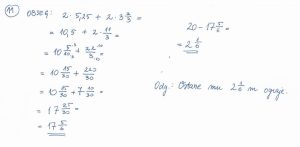 11 OBSEG: 2 · 5,25 + 2 · 3 2/3 =
= 10,5 + 2 · 11/3 =
= 10 5·3/10·3 + 22·10/3·10 =
= 10 15/30 + 220/30
= 10 15/30 + 7 10/30 =
= 17 25/30 =
= 17 5/6
20 - 17 5/6 =
= 2 1/6
Odg.: Ostane mu 2 1/6 m ograje.